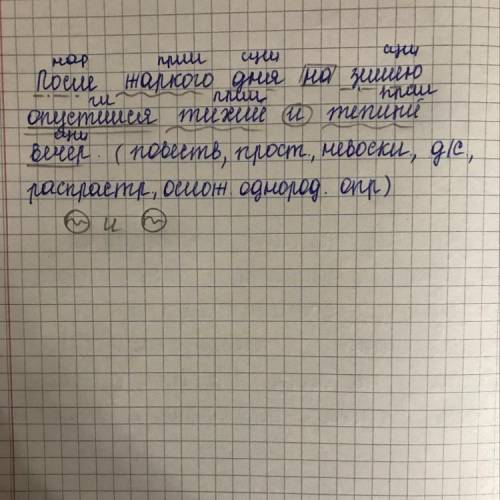 нар прил сущ сущ
После жаркого дня на землю
гл прил прил
опустился тихий и теплый
сущ
вечер. (повеств, прост, невоскл, д/с,
распрастр, ослож. однород. опр)
и